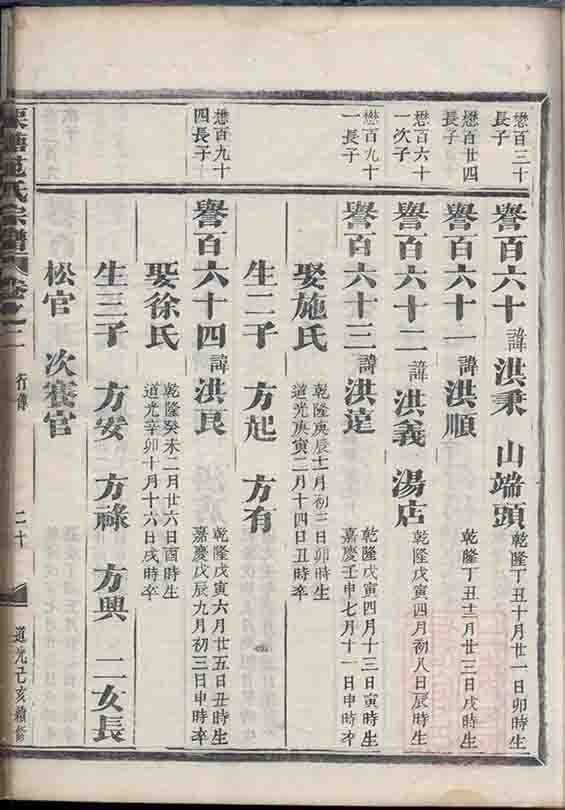 懋百三十
長子
譽百六十 諱洪秉 山端頭 乾隆丁丑十月廿一日卯時生
懋百廿四
長子
譽百六十一 諱洪順 乾隆丁丑十二月廿三日戌時生
懋百六十
一次子
譽百六十二 諱洪義 湯店 乾隆戊寅四月初八日辰時生
懋百九十
一長子
譽百六十三 諱洪達 乾隆戊寅四月十三日寅時生
嘉慶壬申七月十一日申時卒
娶施氏 乾隆庚辰十二月初三日卯時生
道光庚寅二月十四日丑時卒
生二子 方起 方有
懋百九十
四長子
譽百六十四 諱洪良 乾隆戊寅六月廿五日丑時生
嘉慶戊辰九月初三日申時卒
娶徐氏 乾隆癸未二月廿六日酉時生
道光辛卯十月十六日戌時卒
生三子 方安 方祿 方興 二女長
松官 次寨官
氏宗譜 卷之二 行傳 二十 道光己亥續修